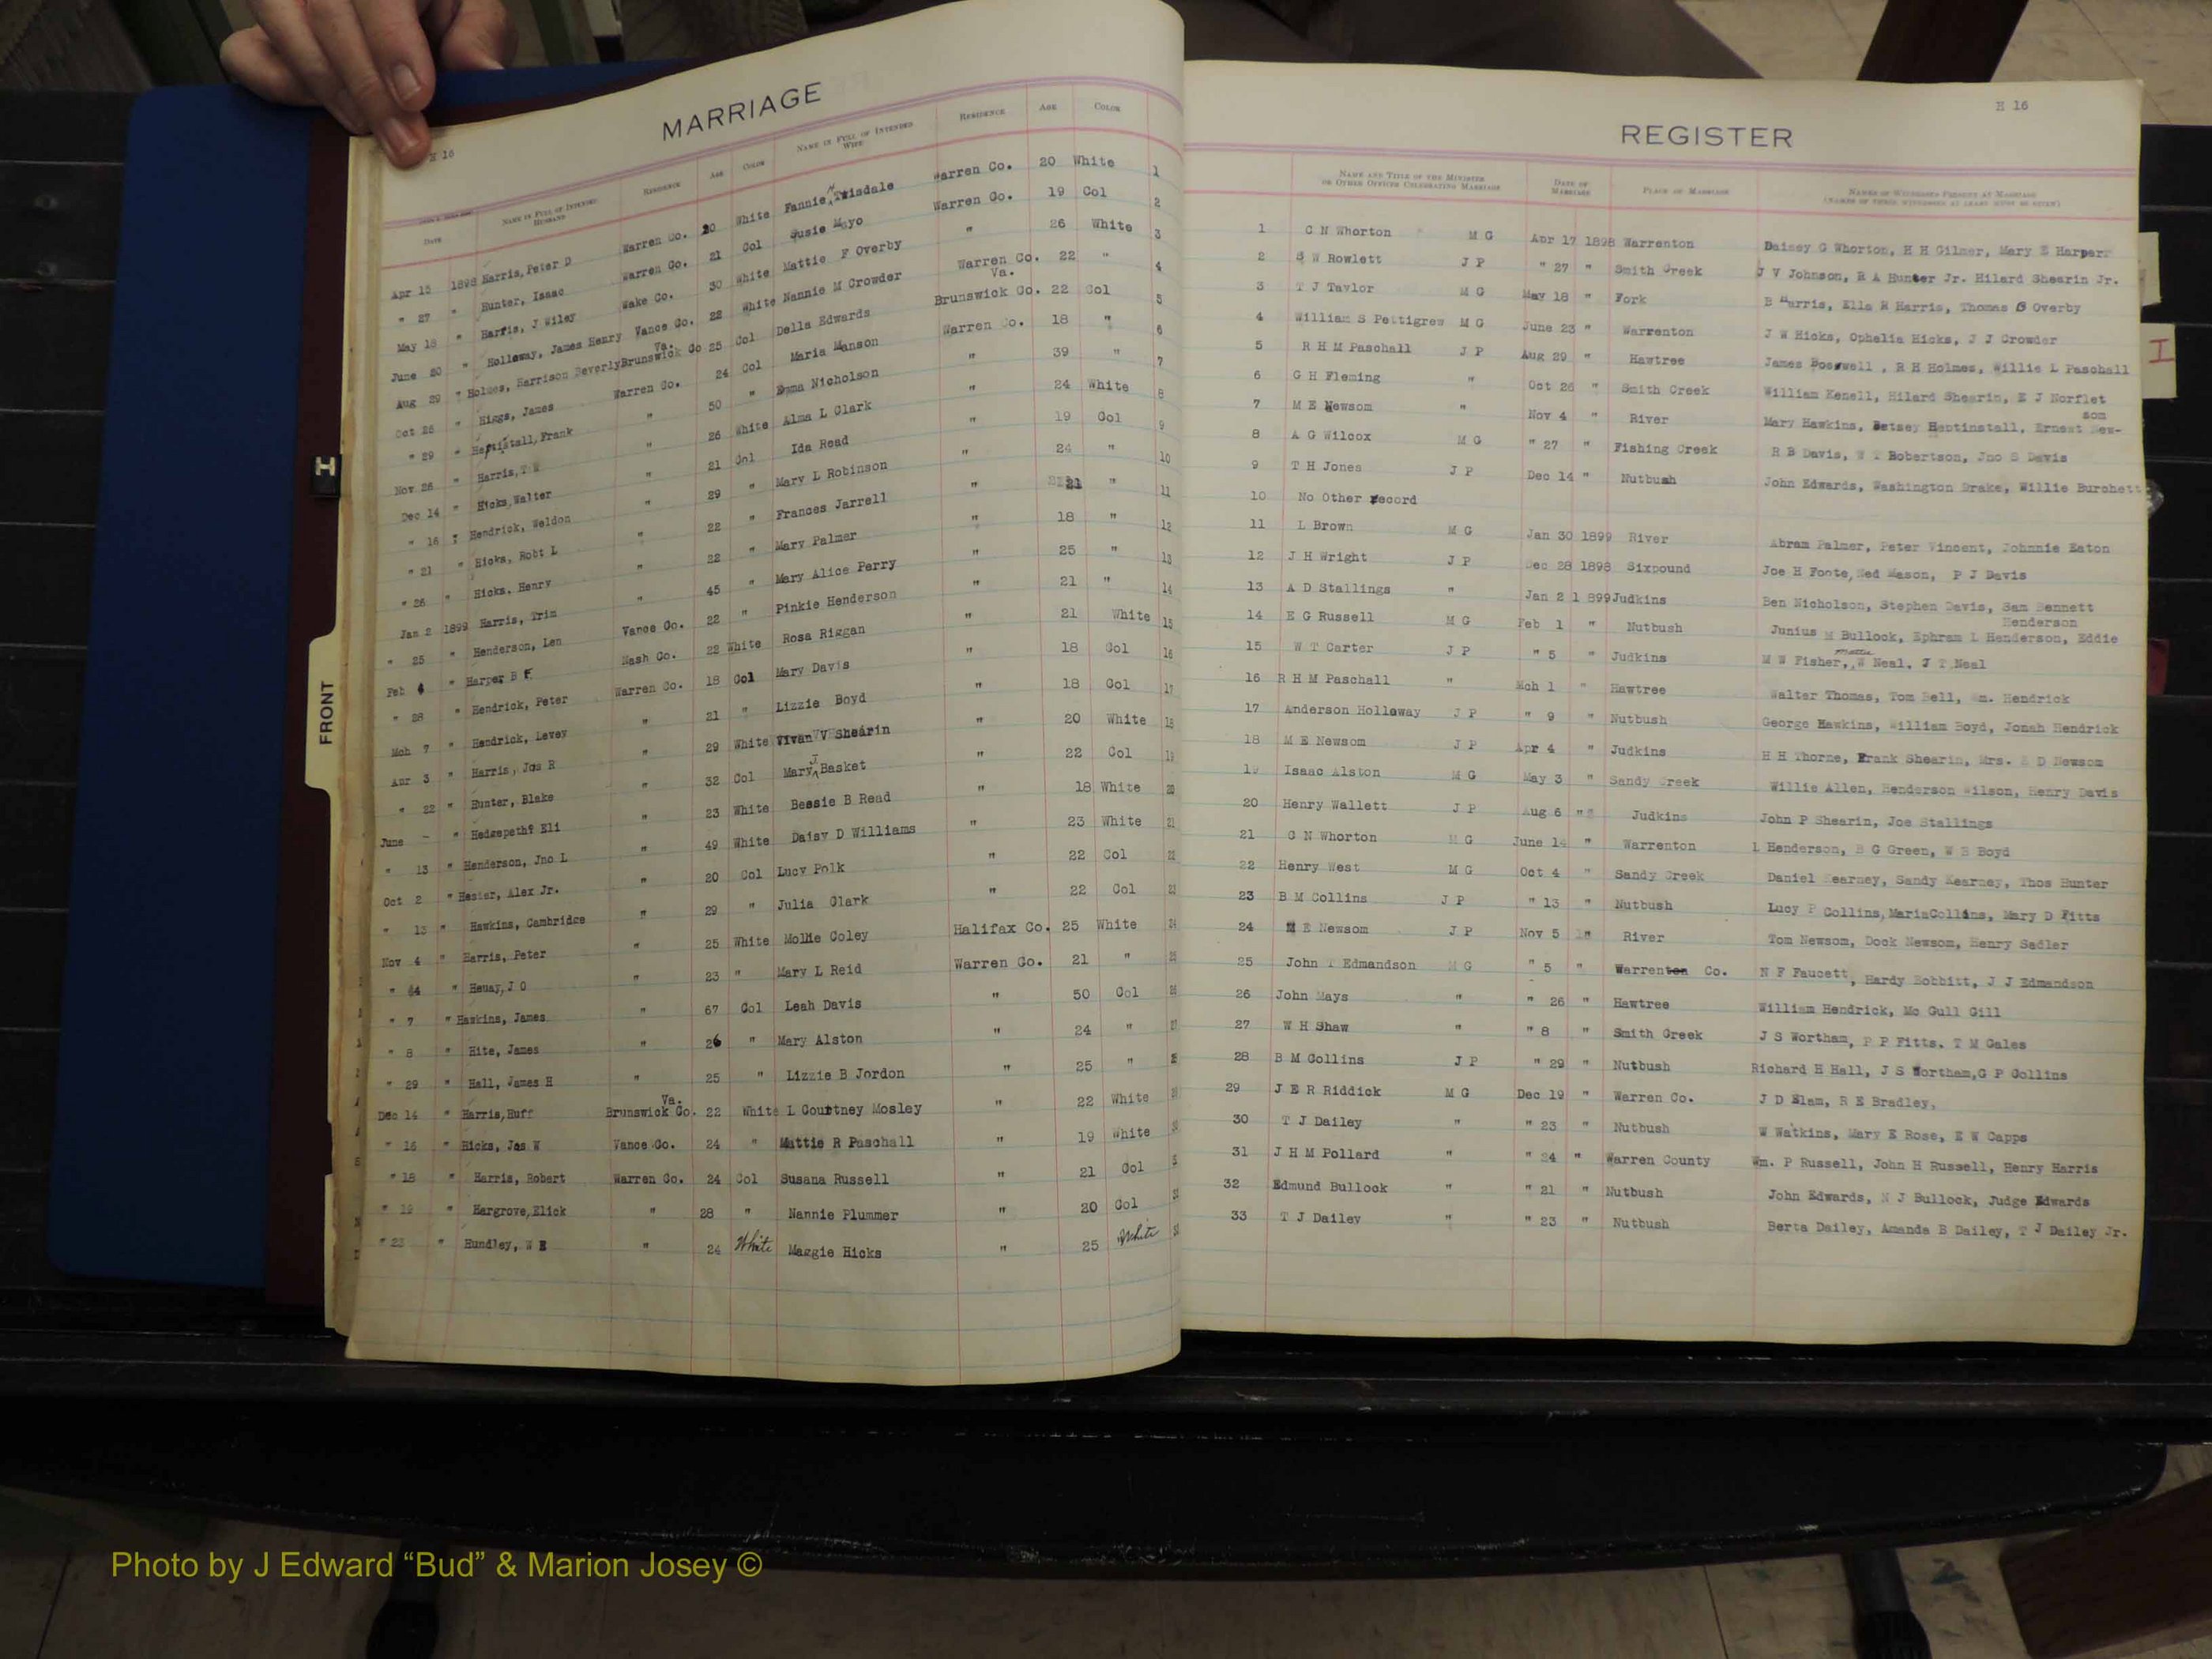 MARRIAGE
H 16
DATE NAME IN FULL OF INTENDED HUSBAND RESIDENCE AGE COLOR NAME IN FULL OF INTENDED WIFE RESIDENCE AGE COLOR
Apr 15 1898 Harris, Peter D Warren Co. 20 White Fannie N Twisdale Warren Co. 20 White 1
" 27 " Hunter, Isaac Warren Co. 21 Col Susie Mayo Warren Co. 19 Col 2
May 18 " Harris, J Wiley Wake Co. 30 White Mattie F Overby " 26 White 3
June 20 " Holloway, James Henry Vance Co. 22 White Nannie M Crowder Warren Co. 22 " 4
Aug 29 " Holmes, Harrison Beverly Brunswick Co Va. 25 Col Della Edwards Brunswick Co. Va. 22 Col 5
Oct 26 " Higgs, James Warren Co. 24 Col Maria Manson Warren Co. 18 " 6
" 29 " Heptinstall, Frank " 50 " Emma Nicholson " 39 " 7
Nov 26 " Harris, T " 26 White Alma L Clark " 24 White 8
Dec 14 " Hicks, Walter " 21 Col Ida Read " 19 Col 9
" 16 " Hendrick, Weldon " 29 " Mary L Robinson " 24 " 10
" 21 " Hicks, Robt L " 22 " Frances Jarrell " 21 " 11
" 26 " Hicks, Henry " 22 " Mary Palmer " 18 " 12
Jan 2 1899 Harris, Trim " 45 " Mary Alice Perry " 25 " 13
" 25 " Henderson, Len Vance Co. 22 " Pinkie Henderson " 21 " 14
Feb 4 " Harper B F Nash Co. 22 White Rosa Riggan " 21 White 15
" 28 " Hendrick, Peter Warren Co. 18 Col Mary Davis " 18 Col 16
Mch 7 " Hendrick, Levey " 21 " Lizzie Boyd " 18 Col 17
Apr 3 " Harris, Jos R " 29 White Vivan V Shearin " 20 White 18
" 22 " Hunter, Blake " 32 Col Mary J Basket " 22 Col 19
June - " Hedgepeth Eli " 23 White Bessie B Read " 18 White 20
" 13 " Henderson, Jno L " 49 White Daisy D Williams " 23 White 21
Oct 2 " Hester, Alex Jr. " 20 Col Lucy Polk " 22 Col 22
" 13 " Hawkins, Cambridge " 29 " Julia Clark " 22 Col 23
Nov 4 " Harris, Peter " 25 White Mollie Coley Halifax Co. 25 White 24
" 4 " Heuay, J O " 23 " Mary L Reid Warren Co. 21 " 25
" 7 " Hawkins, James " 67 Col Leah Davis " 50 Col 26
" 8 " Hite, James " 26 " Mary Alston " 24 " 27
" 29 " Hall, James H " 25 " Lizzie B Jordon " 25 " 28
Dec 14 " Harris, Huff Brunswick Co. Va. 22 White L Courtney Mosley " 22 White
" 16 " Hicks, Jos W Vance Co. 24 " Mattie R Paschall " 19 White
" 18 " Harris, Robert Warren Co. 24 Col Susana Russell " 21 Col
" 19 " Hargrove, Elick " 28 " Nannie Plummer " 20 Col
" 23 " Hundley, W E " 24 White Maggie Hicks " 25 White
REGISTER
H 16
NAME AND TITLE OF THE MINISTER OR OTHER OFFICER CELEBRATING MARRIAGE DATE OF MARRIAGE PLACE OF MARRIAGE NAMES OF WITNESSES PRESENT AT MARRIAGE (NAMES OF THREE WITNESSES AT LEAST MUST BE GIVEN)
1 C N Whorton M G Apr 17 1898 Warrenton Daisey G Whorton, H H Gilmer, Mary E Harper
2 S W Rowlett J P " 27 " Smith Creek J V Johnson, R A Hunter Jr. Hilard Shearin Jr.
3 T J Taylor M G May 18 " Fork B Harris, Ella R Harris, Thomas B Overby
4 William S Pettigrew M G June 23 " Warrenton J W Hicks, Ophelia Hicks, J J Crowder
5 R H M Paschall J P Aug 29 " Hawtree James Boswell , R H Holmes, Willie L Paschall
6 G H Fleming " Oct 26 " Smith Creek William Kenell, Hilard Shearin, E J Norflet
7 M E Newsom " Nov 4 " River Mary Hawkins, Betsey Heptinstall, Ernest New-som
8 A G Wilcox M G " 27 " Fishing Creek R B Davis, W T Robertson, Jno S Davis
9 T H Jones J P Dec 14 " Nutbush John Edwards, Washington Drake, Willie Burchett
10 No Other record
11 L Brown M G Jan 30 1899 River Abram Palmer, Peter Vincent, Johnnie Eaton
12 J H Wright J P Dec 28 1898 Sixpound Joe H Foote, Ned Mason, P J Davis
13 A D Stallings " Jan 2 1899 Judkins Ben Nicholson, Stephen Davis, Sam Bennett
14 E G Russell M G Feb 1 " Nutbush Junius M Bullock, Ephram L Henderson, Eddie Henderson
15 W T Carter J P " 5 " Judkins M W Fisher, Mattie W Neal, J T Neal
16 R H M Paschall " Mch 1 " Hawtree Walter Thomas, Tom Bell, Wm. Hendrick
17 Anderson Holloway J P " 9 " Nutbush George Hawkins, William Boyd, Jonah Hendrick
18 M E Newsom J P Apr 4 " Judkins H H Thorne, Frank Shearin, Mrs. D Newsom
19 Isaac Alston M G May 3 " Sandy Creek Willie Allen, Henderson Wilson, Henry Davis
20 Henry Wallett J P Aug 6 " Judkins John P Shearin, Joe Stallings
21 C N Whorton M G June 14 " Warrenton L Henderson, B G Green, W B Boyd
22 Henry West M G Oct 4 " Sandy Creek Daniel Kearney, Sandy Kearney, Thos Hunter
23 B M Collins J P " 13 " Nutbush Lucy P Collins, Maria Collins, Mary D Fitts
24 M E Newsom J P Nov 5 " River Tom Newsom, Dock Newsom, Henry Sadler
25 John T Edmandson M G " 5 " Warrenton Co. N F Faucett, Hardy Bobbitt, J J Edmandson
26 John Mays " " 26 " Hawtree William Hendrick, Mc Gull Gill
27 W H Shaw " " 8 " Smith Creek J S Wortham, P P Fitts. T M Gales
28 B M Collins J P " 29 " Nutbush Richard H Hall, J S Wortham, G P Collins
29 J E R Riddick M G Dec 19 " Warren Co. J D Elam, R E Bradley,
30 T J Dailey " " 23 " Nutbush W Watkins, Mary E Rose, E W Capps
31 J H M Pollard " " 24 " Warren County Wm. P Russell, John H Russell, Henry Harris
32 Edmund Bullock " " 21 " Nutbush John Edwards, N J Bullock, Judge Edwards
33 T J Dailey " " 23 " Nutbush Berta Dailey, Amanda B Dailey, T J Dailey Jr.
FRONT
H
I
Photo by J Edward “Bud” & Marion Josey ©